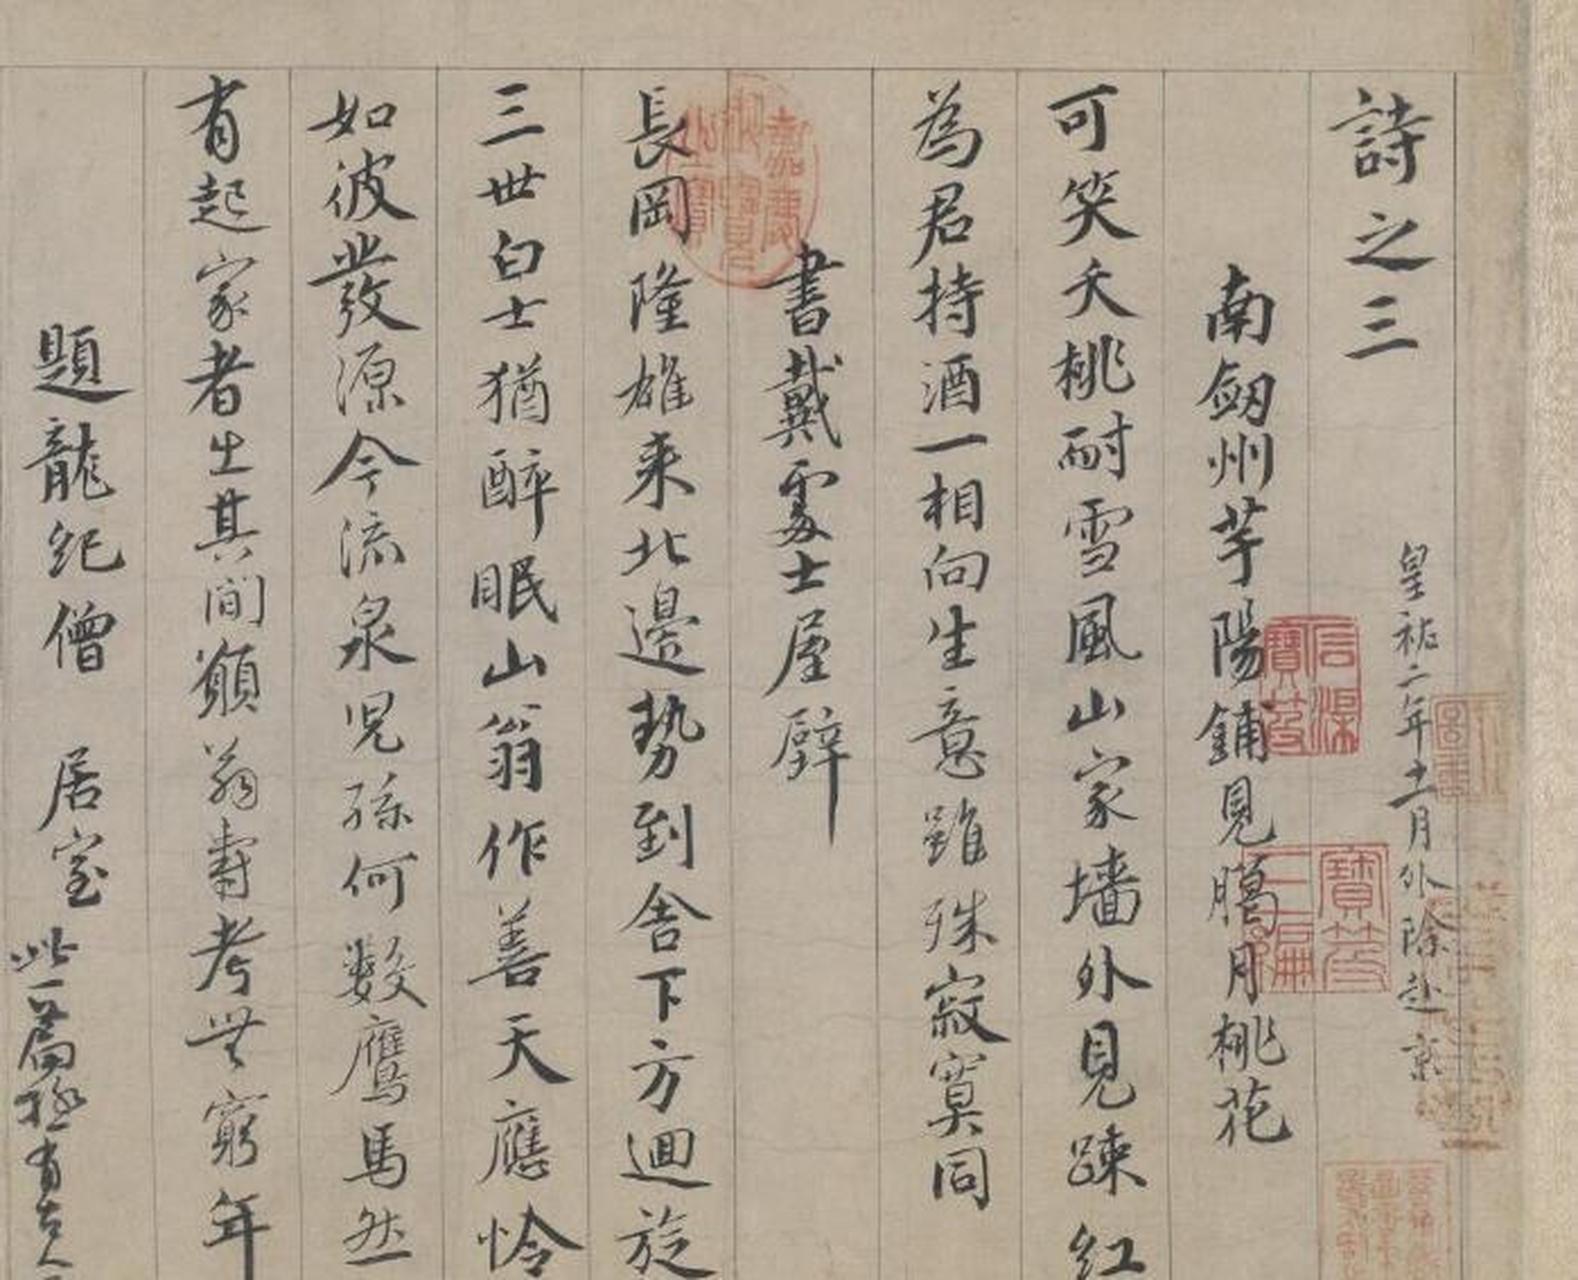 詩之三
皇祐二年十一月外除赴京
南劔州芋陽鋪見臈月桃花
可笑夭桃耐雪風山家墻外見踈紅
為君持酒一相向生意雖殊寂寞同
書戴處士屋壁
長岡隆雄来北邊勢到舎下方迴旋
三世白士猶醉眠山翁作善天應怜
如彼發源今流泉児孫何數鷹馬然
有起家者出其間願翁壽考無窮年
題龍紀僧居室
此一篇極有古人